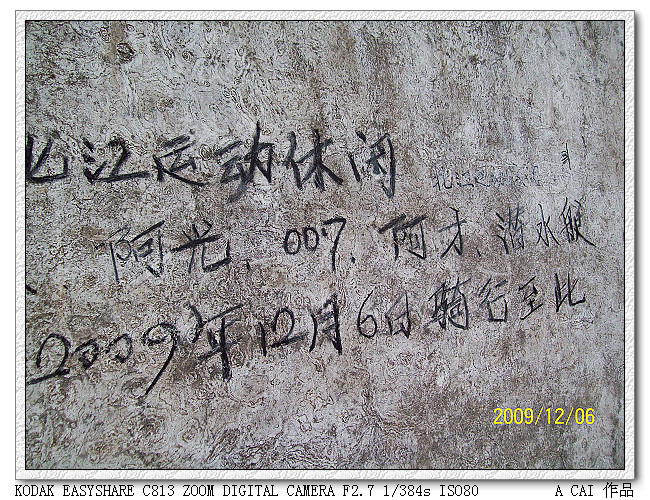 北江运动休闲
阿光、007、阿木、潜水艇
2009年12月6日骑行至此
2009/12/06
KODAK EASYSHARE C813 ZOOM DIGITAL CAMERA F2.7 1/384s ISO80
A CAI 作品